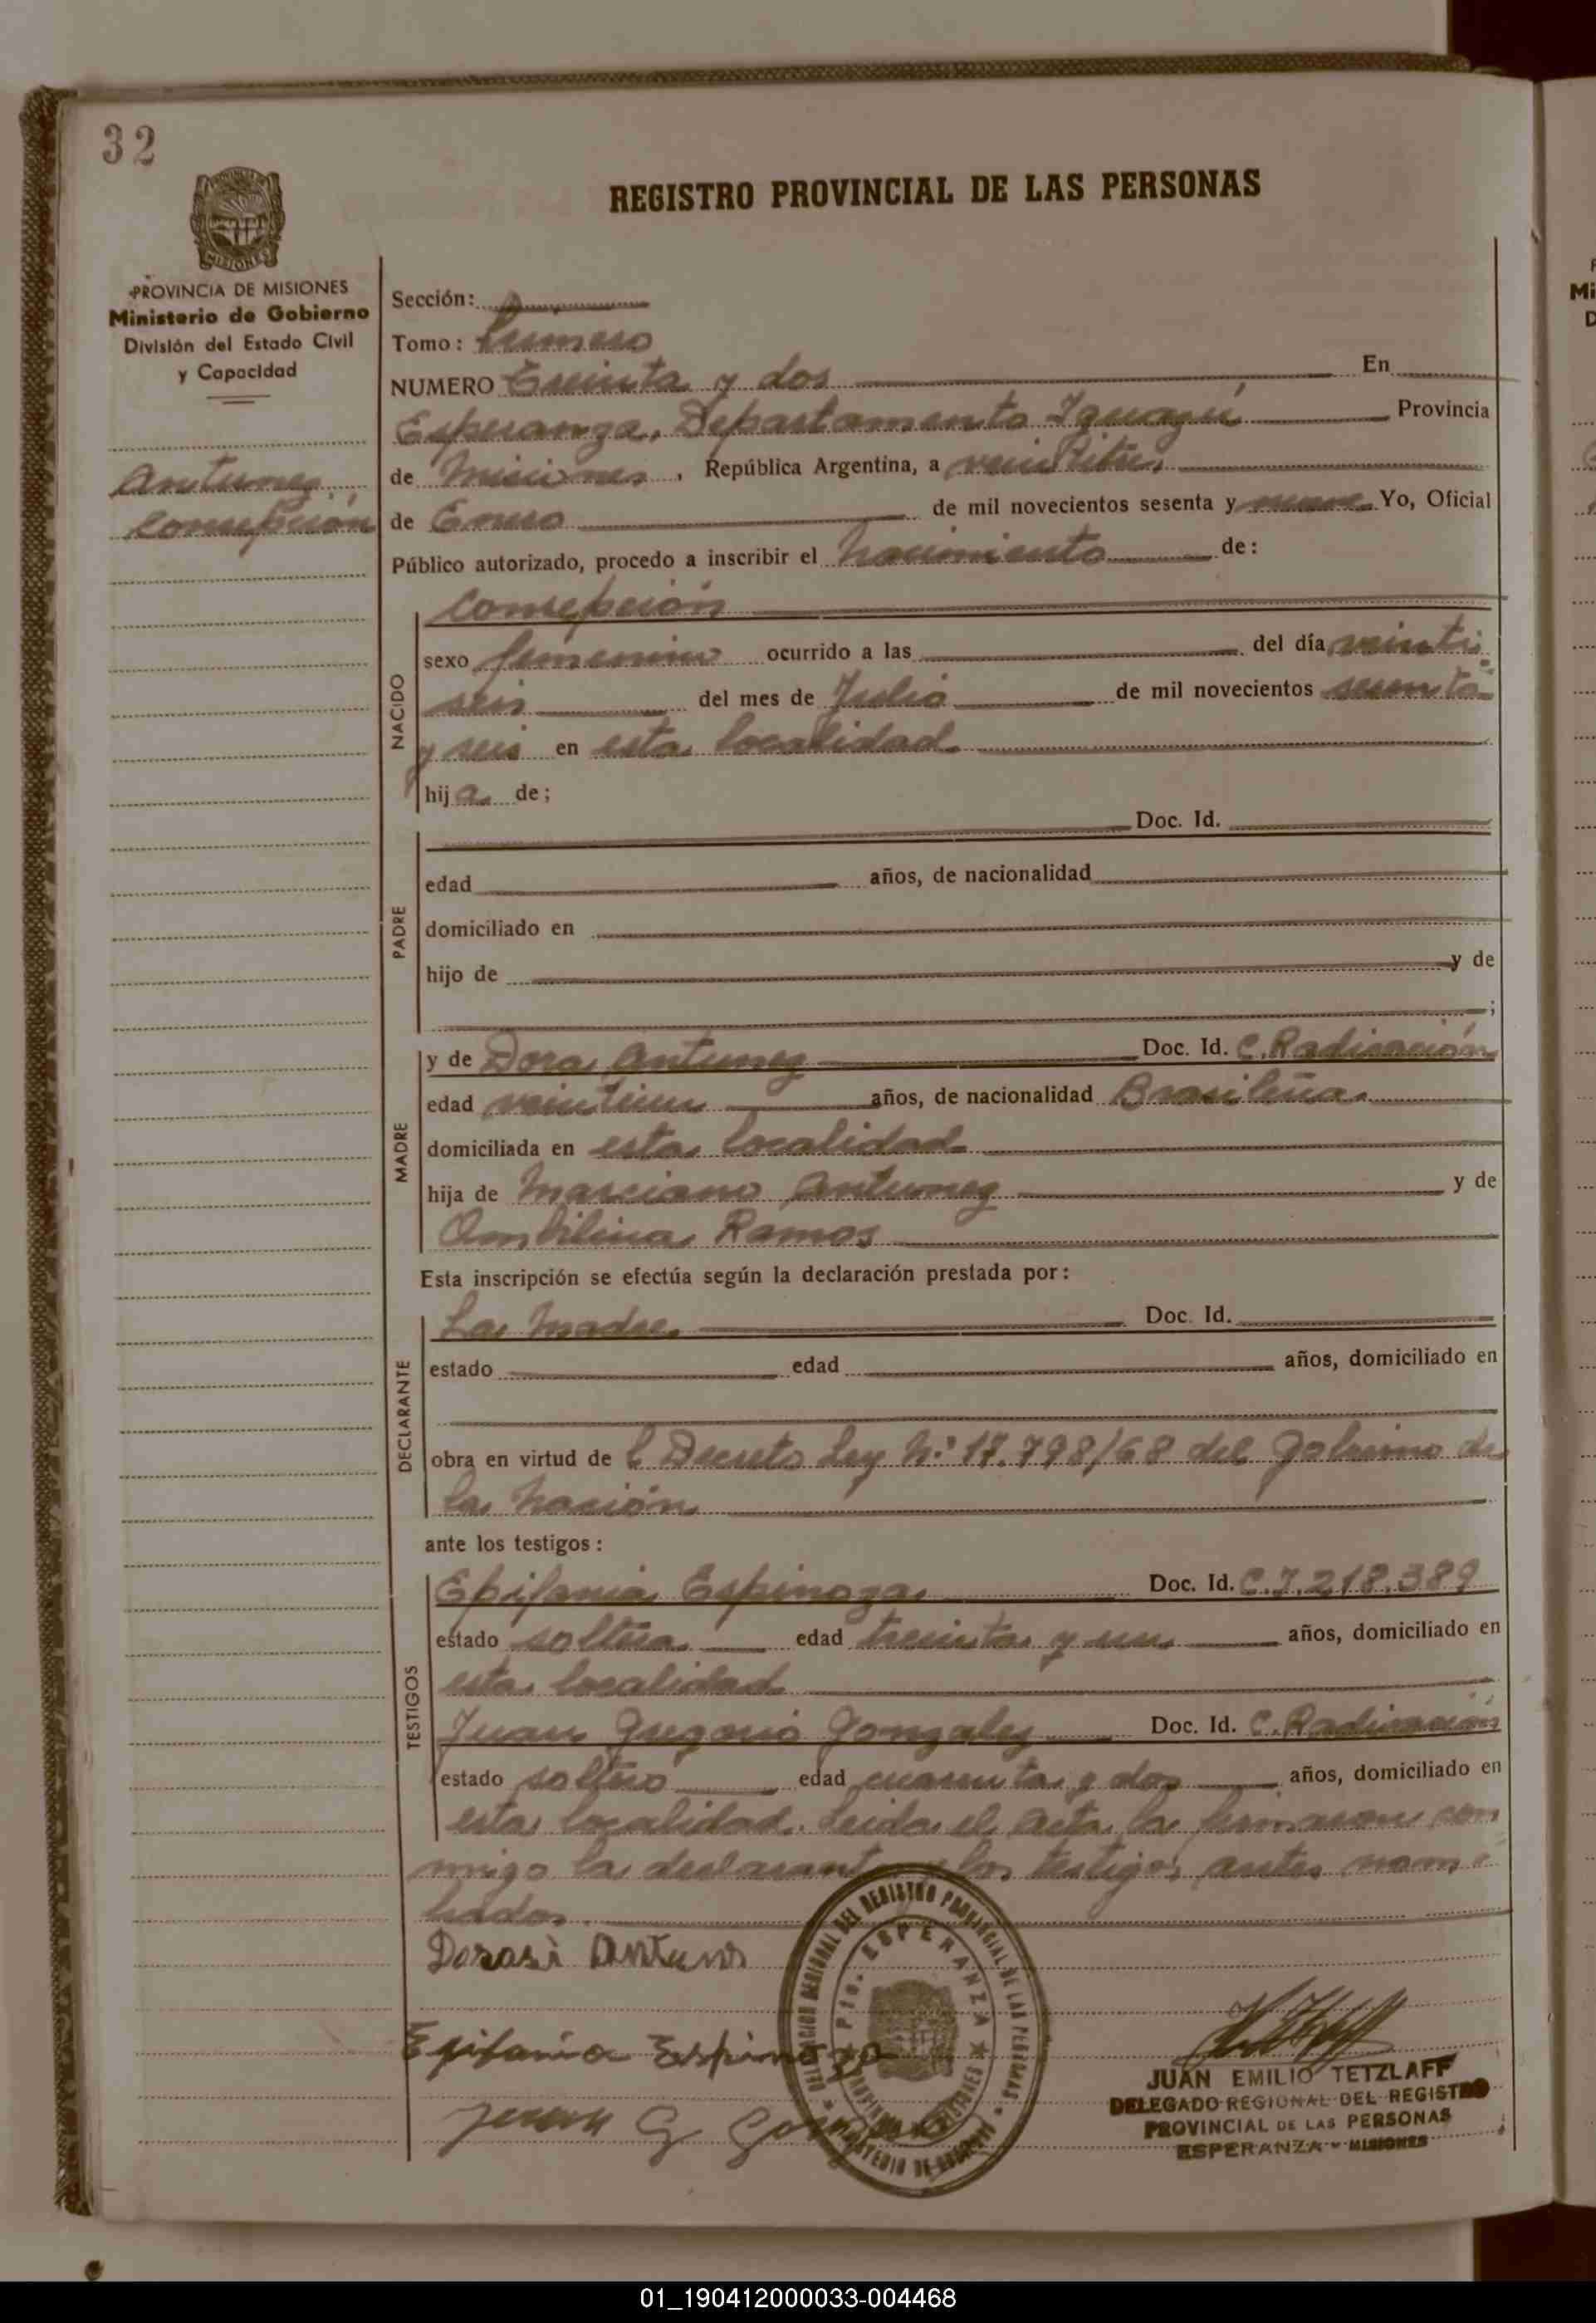 32
REGISTRO PROVINCIAL DE LAS PERSONAS
MISIONES
PROVINCIA DE MISIONES
Ministerio de Gobierno
División del Estado Civil
y Capacidad
Antunez
Consepción
Sección:
Tomo: Primero
NUMERO Treinta y dos En
Esperanza, Departamento Iguazú Provincia
de Misiones, República Argentina, a
de Enero de mil novecientos sesenta y nueve Yo, Oficial
Público autorizado, procedo a inscribir el Nacimiento de:
NACIDO
Consepción
sexo femenino ocurrido a las del día veinti-
seis del mes de Julio de mil novecientos sesenta
y seis en esta localidad
hija de;
PADRE
Doc. Id.
edad años, de nacionalidad
domiciliado en
hijo de y de
;
MADRE
y de Dora Antunez Doc. Id. C. Radicación
edad veintiun años, de nacionalidad Brasileña
domiciliada en esta localidad
hija de Marciano Antunez y de
Ramos
Esta inscripción se efectúa según la declaración prestada por:
DECLARANTE
La Madre Doc. Id.
estado edad años, domiciliado en
obra en virtud de l Decreto Ley N° 17.798/68 del Gobierno de
la Nación
ante los testigos:
TESTIGOS
Epifania Espinoza Doc. Id. C.I. 218.389
estado soltera edad treinta y un años, domiciliado en
esta localidad
Juan Gregorio Gonzalez Doc. Id. C. Radicación
estado soltero edad cuarenta y dos años, domiciliado en
esta localidad. Leida el acta la firmaron con
migo la declarante y los testigos antes nom-
brados.
Dorasi Antuns
Epifania Espinoza
Juan G Gonzalez
DELEGACION REGIONAL DEL REGISTRO PROVINCIAL DE LAS PERSONAS
Pto. ESPERANZA
PROVINCIA DE MISIONES
MINISTERIO DE GOBIERNO
JUAN EMILIO TETZLAFF
DELEGADO REGIONAL DEL REGISTRO
PROVINCIAL DE LAS PERSONAS
ESPERANZA - MISIONES
Mi
01_190412000033-004468